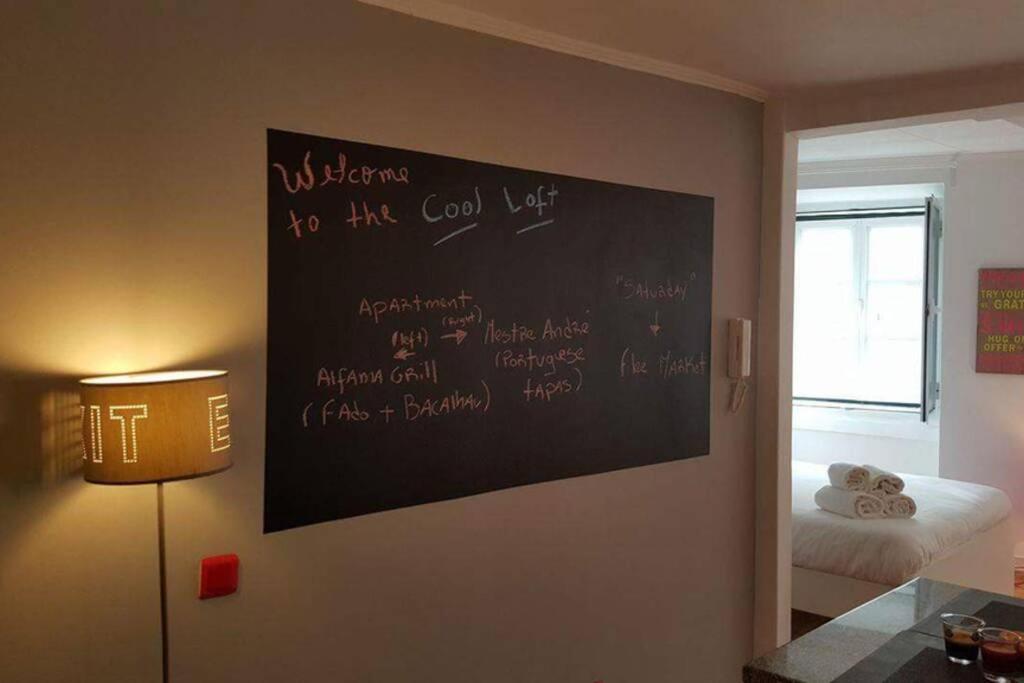 Welcome
to the Cool Loft
Apartment
(left) (Right)
Alfama Grill
(Fado + Bacalhau)
Mestre André
(Portuguese
tapas)
"Saturday"
Flee Market
IT E
TRY YOUR
GRAT
HUG O
OFFER